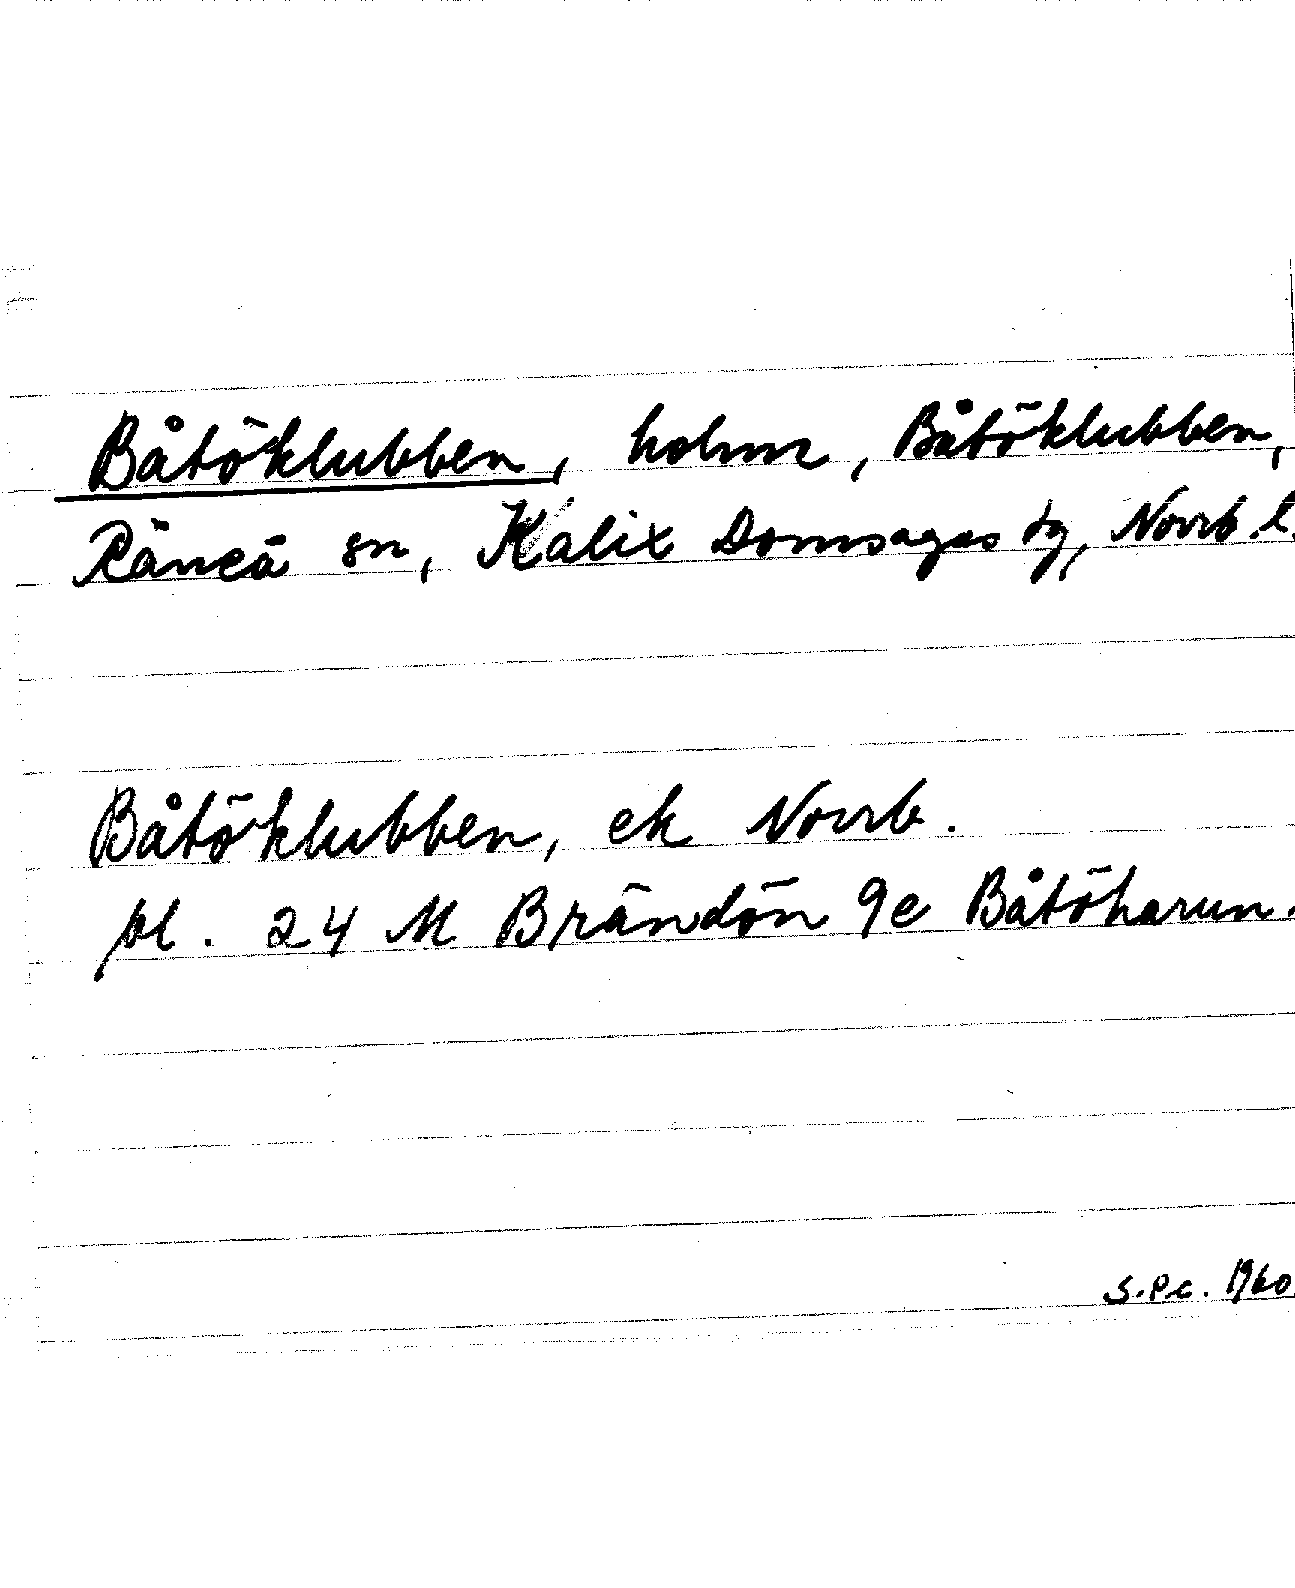 Båtöklubben, holme, Båtöklubben,
Råneå sn, Kalix Domsagas tg, Norrb. l.
Båtöklubben, ek Norrb.
bl. 24 M Brändön 9e Båtöharun.
S.Pc. 1960